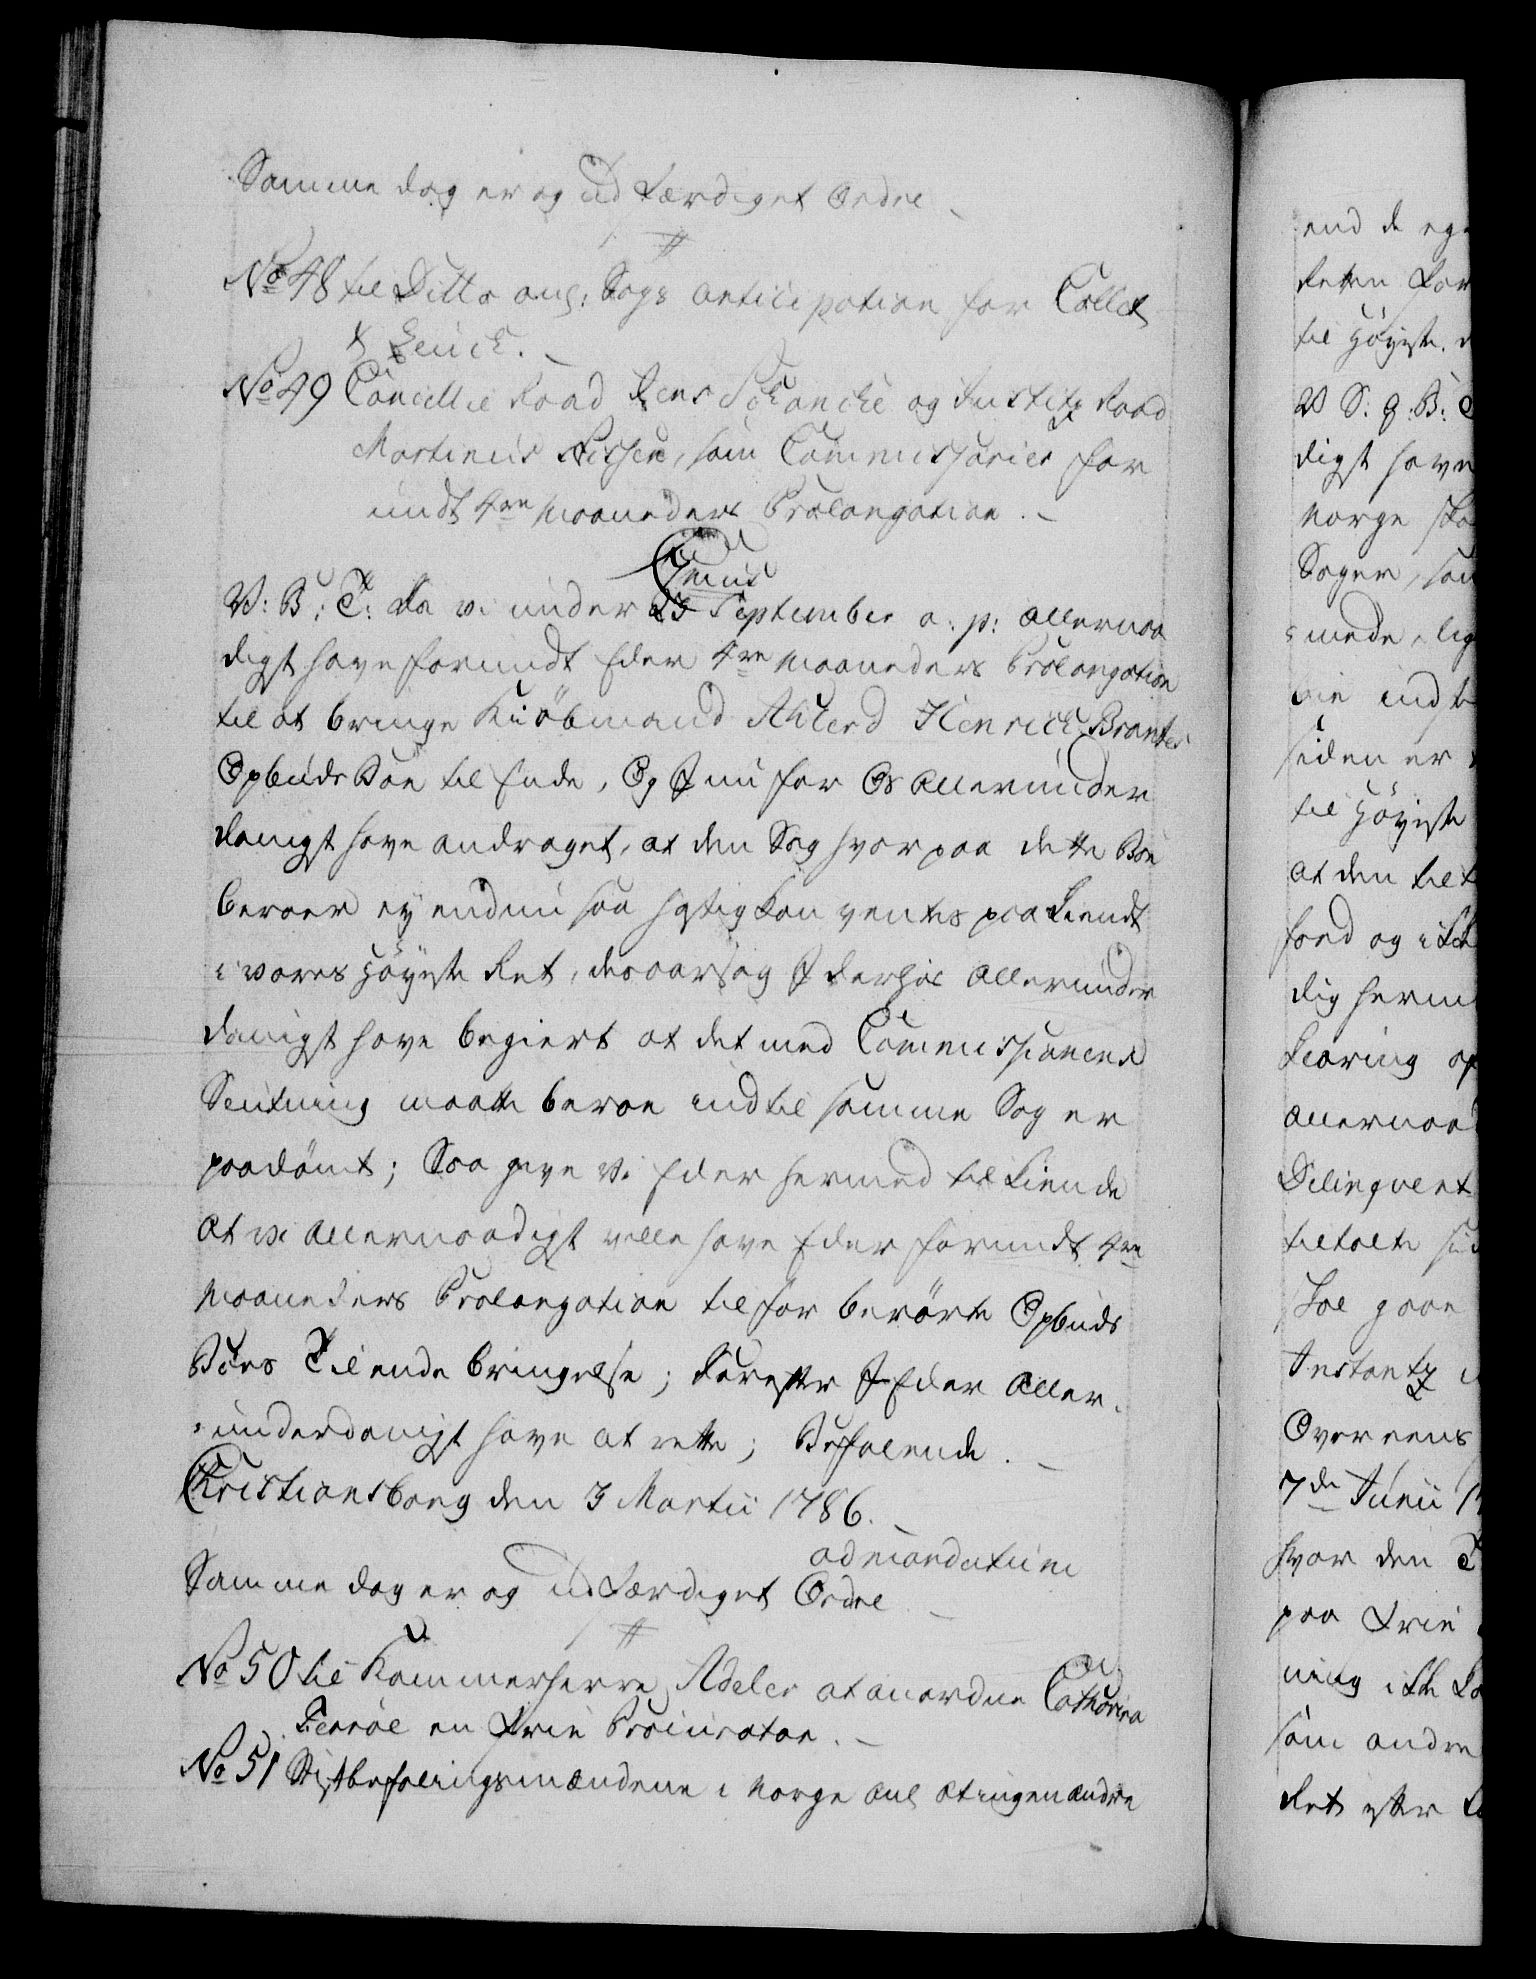 Samme dag er og udfærdiget Ordre
No 48 til Ditto ang: Sags anticipation for Collet
& Leuch.
No 49 Cancellie Raad Jens Schanche og Justitz Raad
Martinus Nissen, som Commissarier for
undt 4re Maaneders Prolongation.
V: B: T: Da vi under 23 September a: p: allernaa
digst have forundt Eder 4re Maaneders Prolongation
til at bringe Kiöbmand Ahlerd Henrich Brantes
Opbuds Boe til Ende, Og I nu for Os allerunder
danigst have andraget, at den Sag hvorpaa dette Boe
beroer ey endnu saa hastig kan ventes paakiendt
i vores Höyeste Ret, desaarsag I derhos allerunder
danigst have begiert at det med Commissionens
Slutning maatte beroe indtil samme Sag er
paadömt; Saa give vi Eder hermed tilkiende
at vi allernaadigst ville have Eder forundt 4re
Maaneders Prolongation til forberörte Opbuds
Boes Tilendebringelse; Derefter I Eder aller-
underdanigst have at rette; Befalende.
Christiansborg den 3 Martii 1786.
ad mandatum
Samme dag er og udfærdiget Ordre
No 50 til Kammerherre Adeler at anordne Cathrina
Ferröe en frie Procurator.
No 51 Stiftbefalingsmændene i Norge anl at ingen andre
end de
til Höyeste
V S: g: B: T
digst have
Norge
Sager, som
mede, lig
siden er
til Höyeste
at den
fred og ikke
dig herm
klaring
allernaad
Delinqvent
tiltalte
skal gaae
Instantz
Overeens
7de Junii 17
hvor den T
paa frie
ning ikke
som andre
Ret efter